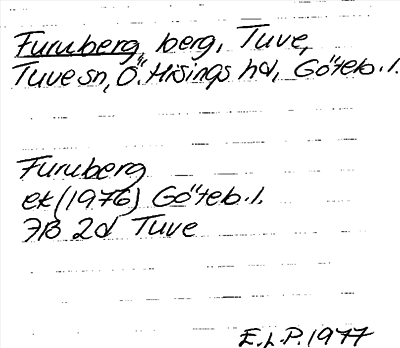 Furuberg, berg, Tuve,
Tuve sn, Ö. Hisings hd, Göteb. l.
Furuberg
ek (1976) Göteb. l.
7B 2d Tuve
E.L.P. 1977